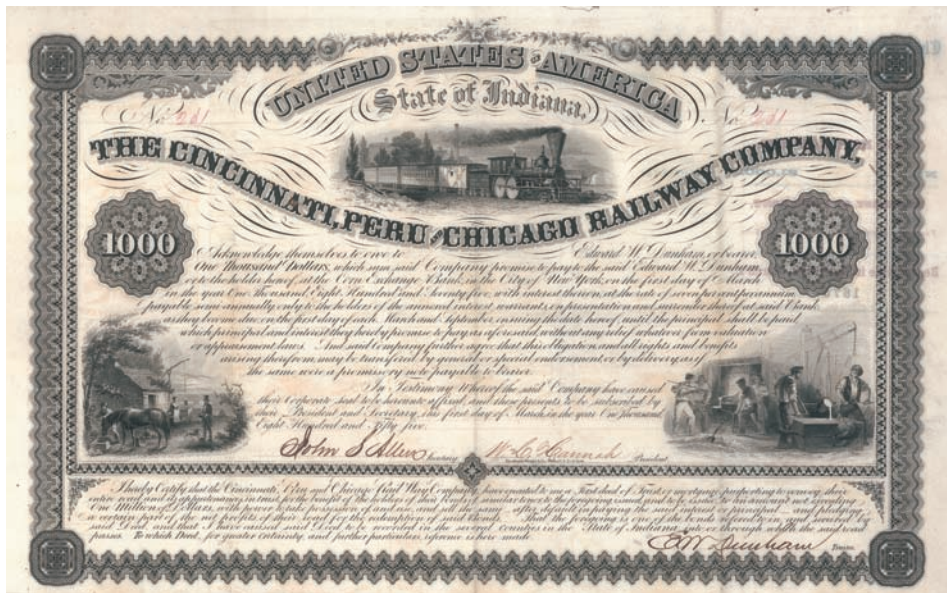 UNITED STATES OF AMERICA
State of Indiana,
No. 261 No. 261
THE CINCINNATI, PERU AND CHICAGO RAILWAY COMPANY,
1000 1000
Acknowledge themselves to owe to Edward W. Dunham, or bearer,
One Thousand Dollars, which sum said Company promise to pay to the said Edward W. Dunham,
or to the holder hereof, at the Corn Exchange Bank, in the City of New York, on the first day of March
in the year One Thousand, Eight Hundred and Seventy five, with interest thereon, at the rate of seven per cent per annum
payable semi-annually only to the holder of the annexed interest warrants on presentation and surrender thereof at said Bank
as they become due, on the first day of each March and September ensuing the date hereof, until the principal shall be paid,
which principal and interest they hereby promise to pay as aforesaid, without any relief whatever from valuation
or appraisement laws. And said Company further agree that this obligation, and all rights and benefits
arising therefrom may be transfered by general or special endorsement or by delivery, as if
the same were a promissory note payable to bearer.
In Testimony Whereof the said Company have caused
their Corporate seal to be hereunto affixed, and these presents to be subscribed by
their President and Secretary, this first day of March, in the year One Thousand
Eight Hundred and Fifty five.
John S Allen Secretary President
I hereby Certify that the Cincinnati, Peru and Chicago Rail Way Company, have executed to me a Deed of Trust, or mortgage purporting to convey their
entire road and all appurtenances, in trust, for the benefit of the holders of their bonds of similar tenor to the foregoing issued and to be issued to an amount not exceeding
One Million of Dollars, with power to take possession of and use, and sell the same after default in paying the said interest or principal and pledging
a certain part of the net profits of their road for the redemption of said Bonds. That the foregoing is one of the bonds referred to in and secured by
said Deed, and that I have caused said Deed to be recorded in the several counties in the State of Indiana, into or through which the said road
passes. To which Deed, for greater certainty, and further particulars, reference is here made.
E W Dunham Trustee.